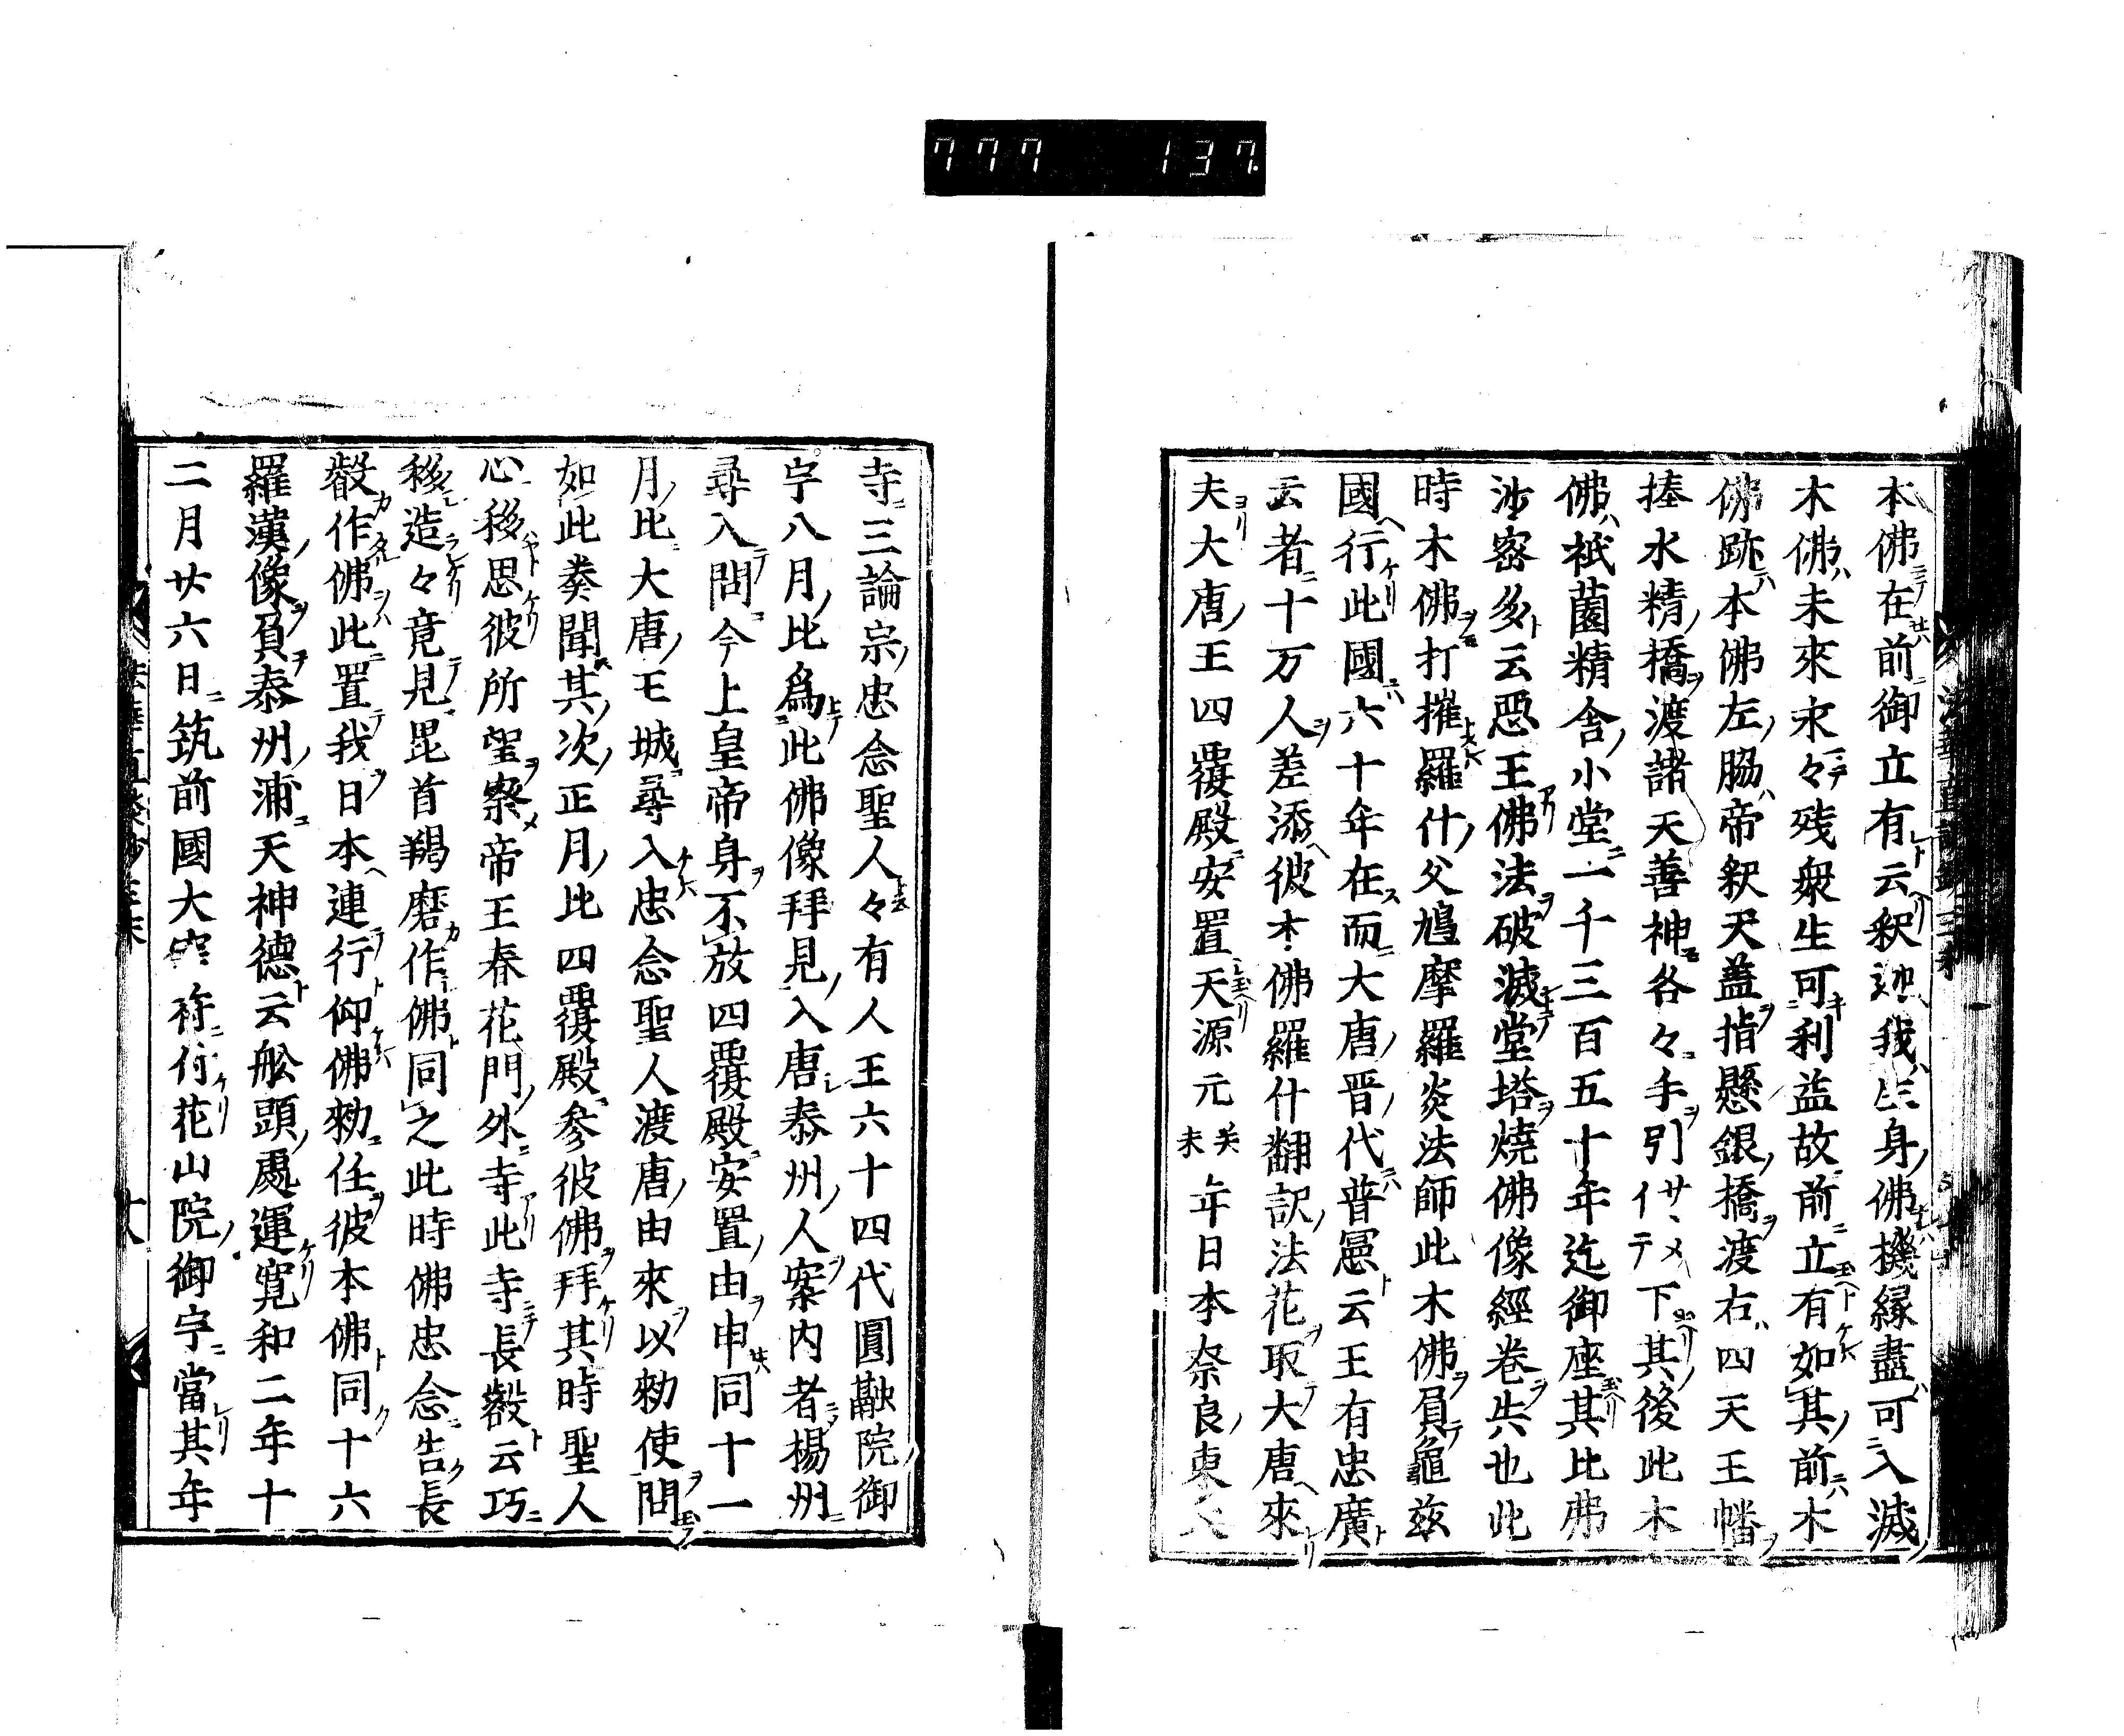 777 137
本佛在前御立有云釈迦我生身佛機縁盡可入滅
木佛未來末々残衆生可利益故前立有如其前木
佛跡本佛左脇帝釈天盖指懸銀橋渡右四天王幡
捧水精橋渡諸天善神各々手引下其後此木
佛祇薗精舎小堂一千三百五十年迄御座其比弗
沙密多云悪王佛法破滅堂塔燒佛像經卷失也此
時木佛打摧羅什父鳩摩羅炎法師此木佛負龜茲
國行此國六十年在而大唐晋代普憲云王有忠廣
云者十万人差添彼木佛羅什翻訳法花取大唐來
夫大唐王四覆殿安置天源元年日本奈良東大
寺三論宗忠念聖人々有人王六十四代圓融院御
宇八月比爲此佛像拜見入唐泰州人案内者楊州
尋入問今上皇帝身不放四覆殿安置由申同十一
月比大唐王城尋入忠念聖人渡唐由來以勅使問
如此奏聞其次正月比四覆殿參彼佛拜其時聖人
心移思彼所望察帝王春花門外寺此寺長觳云巧
移造々竟見毘首羯磨作佛同之此時佛忠念告長
觳作佛此置我日本連行仰佛勅任彼本佛同十六
羅漢像負泰州浦天神德云舩頭處運寛和二年十
二月廿六日筑前國大宰符付花山院御宇當其年